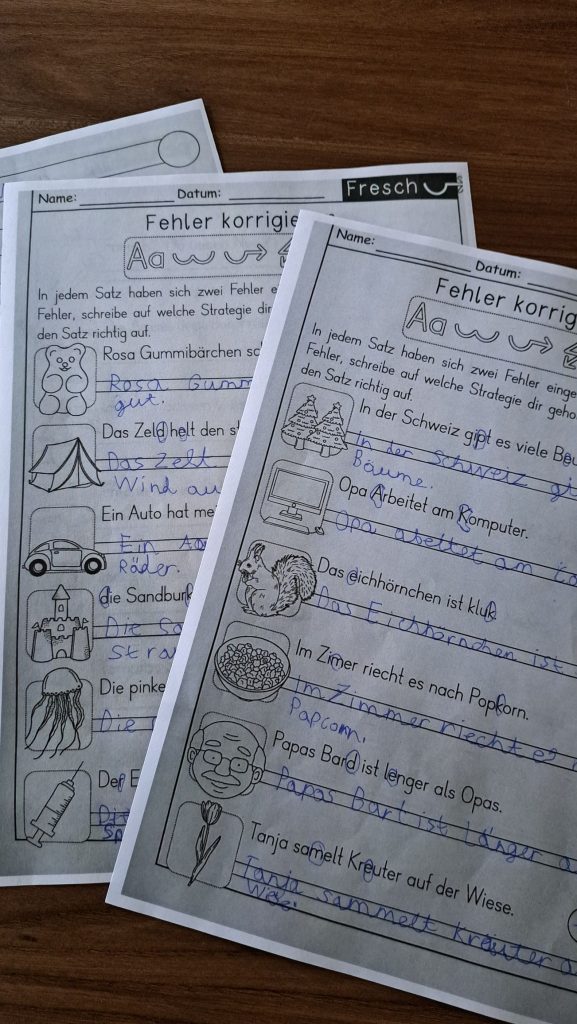 Name: Datum: Fresch
Fehler korrigie
Aa
In jedem Satz haben sich zwei Fehler e
Fehler, schreibe auf welche Strategie dir
den Satz richtig auf.
Rosa Gummibärchen sc
Rosa Gumm
gut.
Das Zeld helt den st
Das Zelt
Wind au
Ein Auto hat me
Ein Au
Räder.
die Sandburk
Die Sa
Stra
Die pinke
Die
Der E
Name: Datum:
Fehler korrig
Aa
In jedem Satz haben sich zwei Fehler einge
Fehler, schreibe auf welche Strategie dir geho
den Satz richtig auf.
In der Schweiz gipt es viele Beu
In der Schweiz gi
Bäume.
Opa Arbeitet am Komputer.
Opa abeitet am Co
Das eichhörnchen ist kluk
Das Eichhörnchen ist
Im Zimer riecht es nach Popkorn.
Im Zimmer riecht es
Papcorn.
Papas Bard ist lenger als Opas.
Papas Bart ist länger a
Tanja samelt Kreuter auf der Wiese.
Tanja sammelt Kräuter a